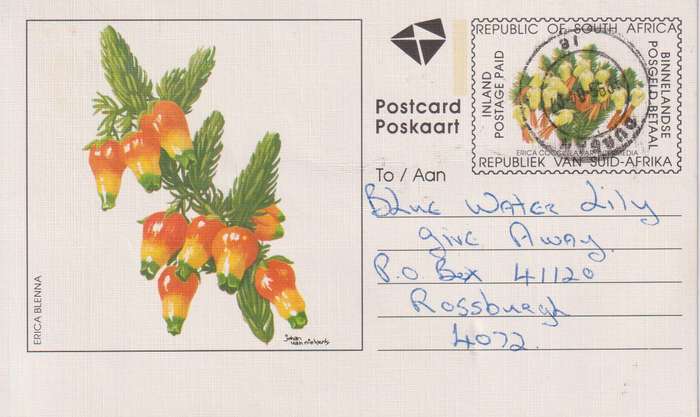 ERICA BLENNA
Johan van Niekerk
Postcard
Poskaart
REPUBLIC OF SOUTH AFRICA
INLAND
POSTAGE PAID
BINNELANDSE
POSGELD BETAAL
ERICA
REPUBLIEK VAN SUID-AFRIKA
To / Aan
Blue Water Lily
Give Away.
P.O Box 41120
Rossburgh
4072.